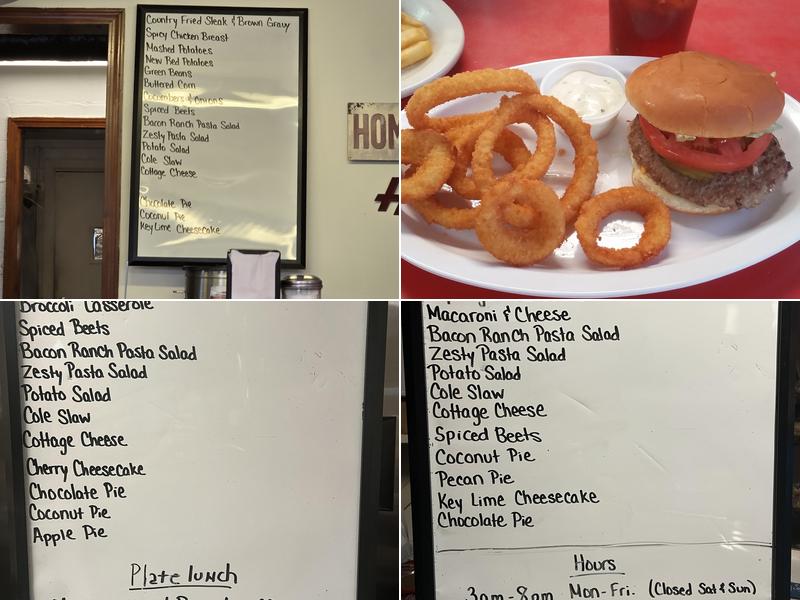 Country Fried Steak & Brown Gravy
Spicy Chicken Breast
Mashed Potatoes
New Red Potatoes
Green Beans
Buttered Corn
Cucumbers & Onions
Spiced Beets
Bacon Ranch Pasta Salad
Zesty Pasta Salad
Potato Salad
Cole Slaw
Cottage Cheese
Chocolate Pie
Coconut Pie
Key Lime Cheesecake
HOM
Broccoli Casserole
Spiced Beets
Bacon Ranch Pasta Salad
Zesty Pasta Salad
Potato Salad
Cole Slaw
Cottage Cheese
Cherry Cheesecake
Chocolate Pie
Coconut Pie
Apple Pie
Plate lunch
Macaroni & Cheese
Bacon Ranch Pasta Salad
Zesty Pasta Salad
Potato Salad
Cole Slaw
Cottage Cheese
Spiced Beets
Coconut Pie
Pecan Pie
Key Lime Cheesecake
Chocolate Pie
Hours
3am-8pm Mon-Fri. (Closed Sat & Sun)